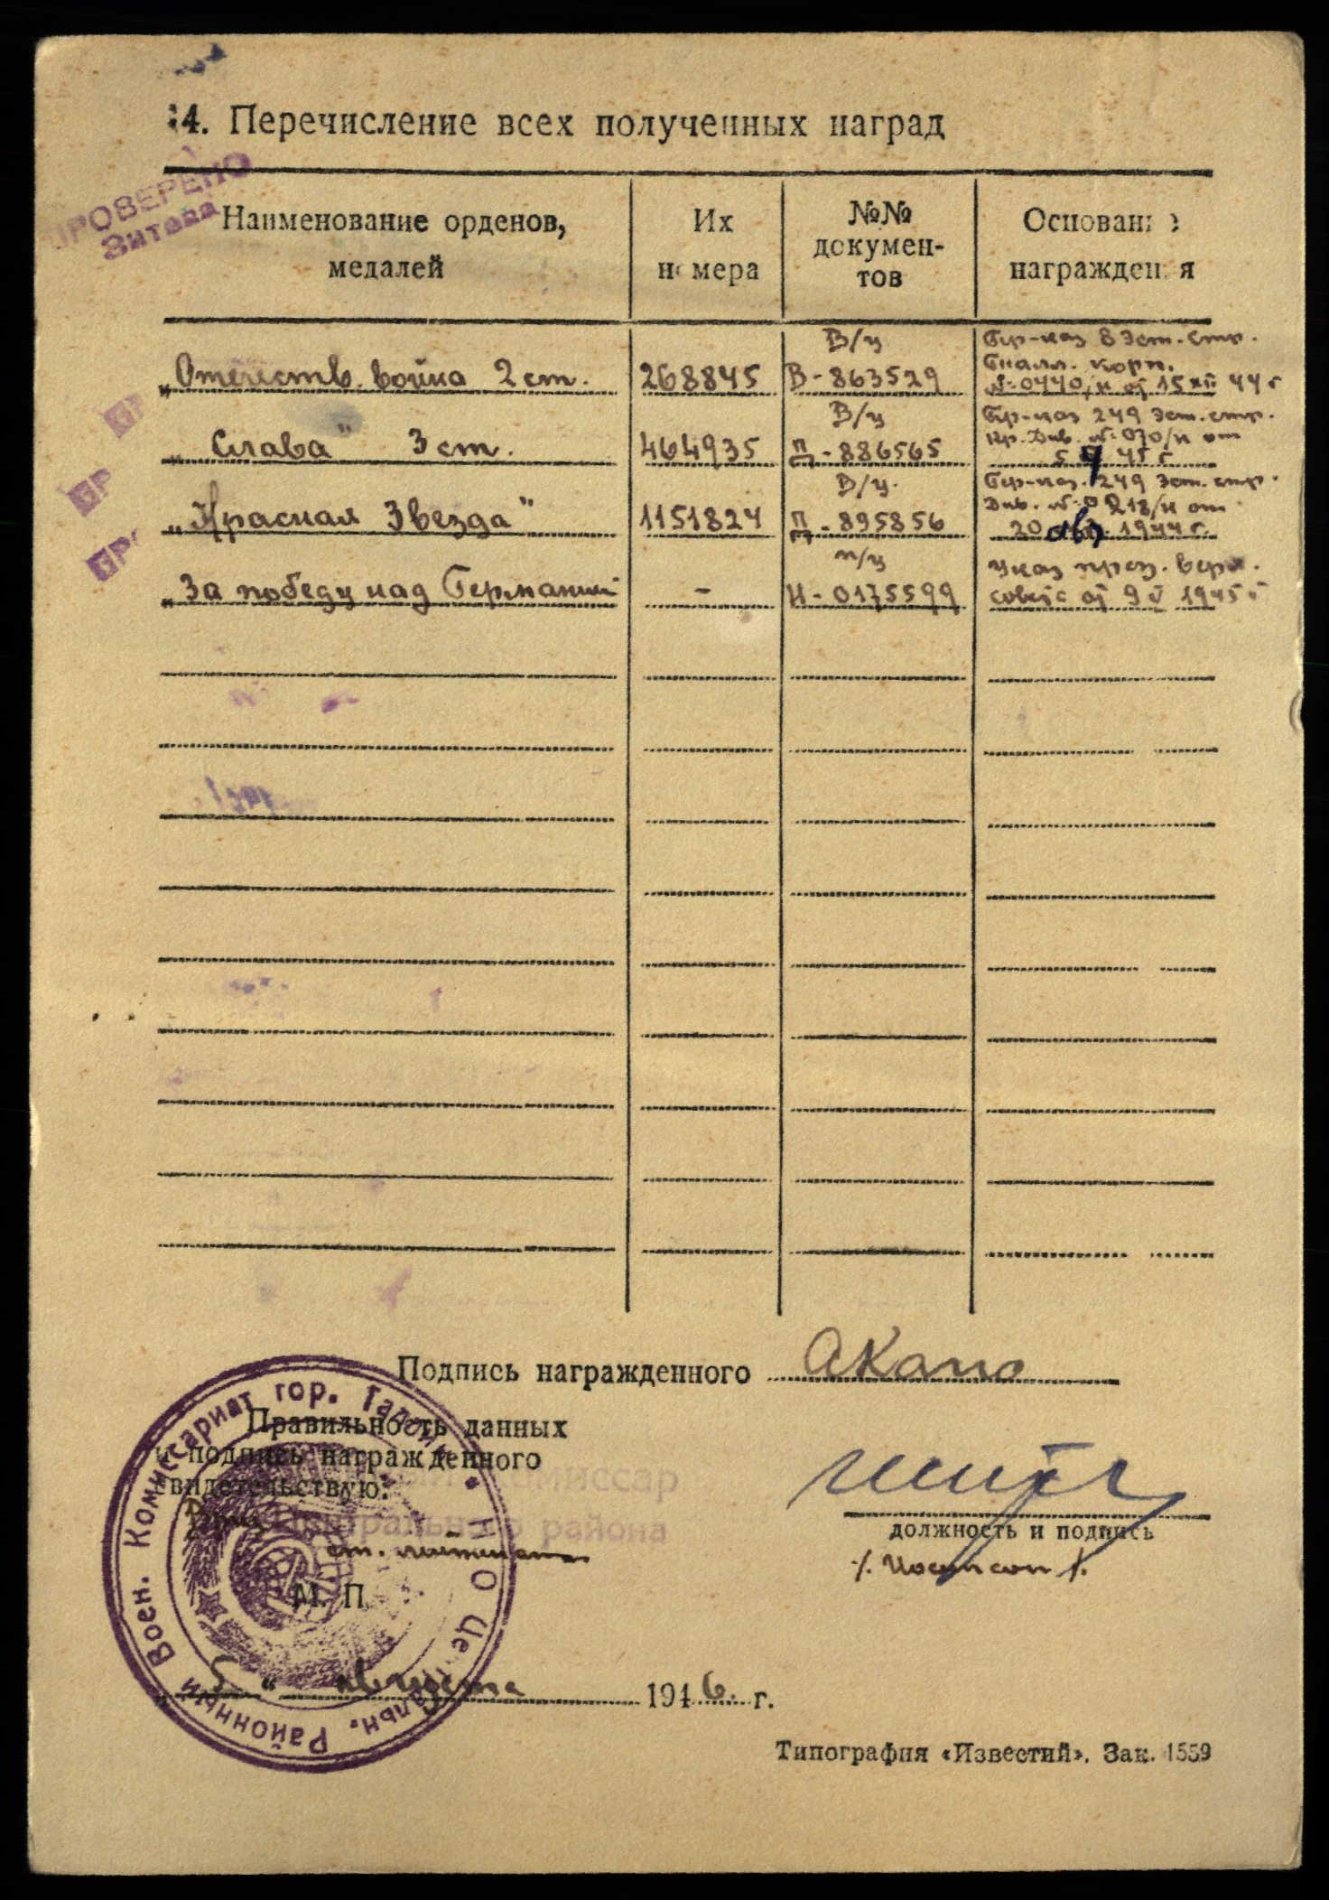 14. Перечисление всех полученных наград
ПРОВЕРЕНО
Зитева
Наименование орденов, медалей
Их номера
№№ докумен-тов
Основание награждения
„Отечеств. война 2 ст.
268845
В/у
В-863529
Пр-каз 8 Эст. стр.
корп.
№-0440/н от 15 XII 44 г
„Слава" 3 ст.
464935
В/у
П-886565
Пр-каз 249 Эст. стр.
Кр. Див. №-070/н от
5 45 г
„Красная Звезда"
1151824
В/у.
П-895856
Пр-каз. 249 Эст. стр.
Див. № 218/н от
20 1944 г.
„За победу над Германией
-
п/у
И-0175599
Указ през. верх.
совета от 9 V 1945 г
Подпись награжденного
АКапо
Правильность данных
и подпись награжденного
свидетельствую:
Комиссар
Центрального района
ст. лейтенант
М. П.
должность и подпись
„ 5 " августа 1946. г.
Воен. Комиссариат гор.
Районный
Типография «Известий». Зак. 1559